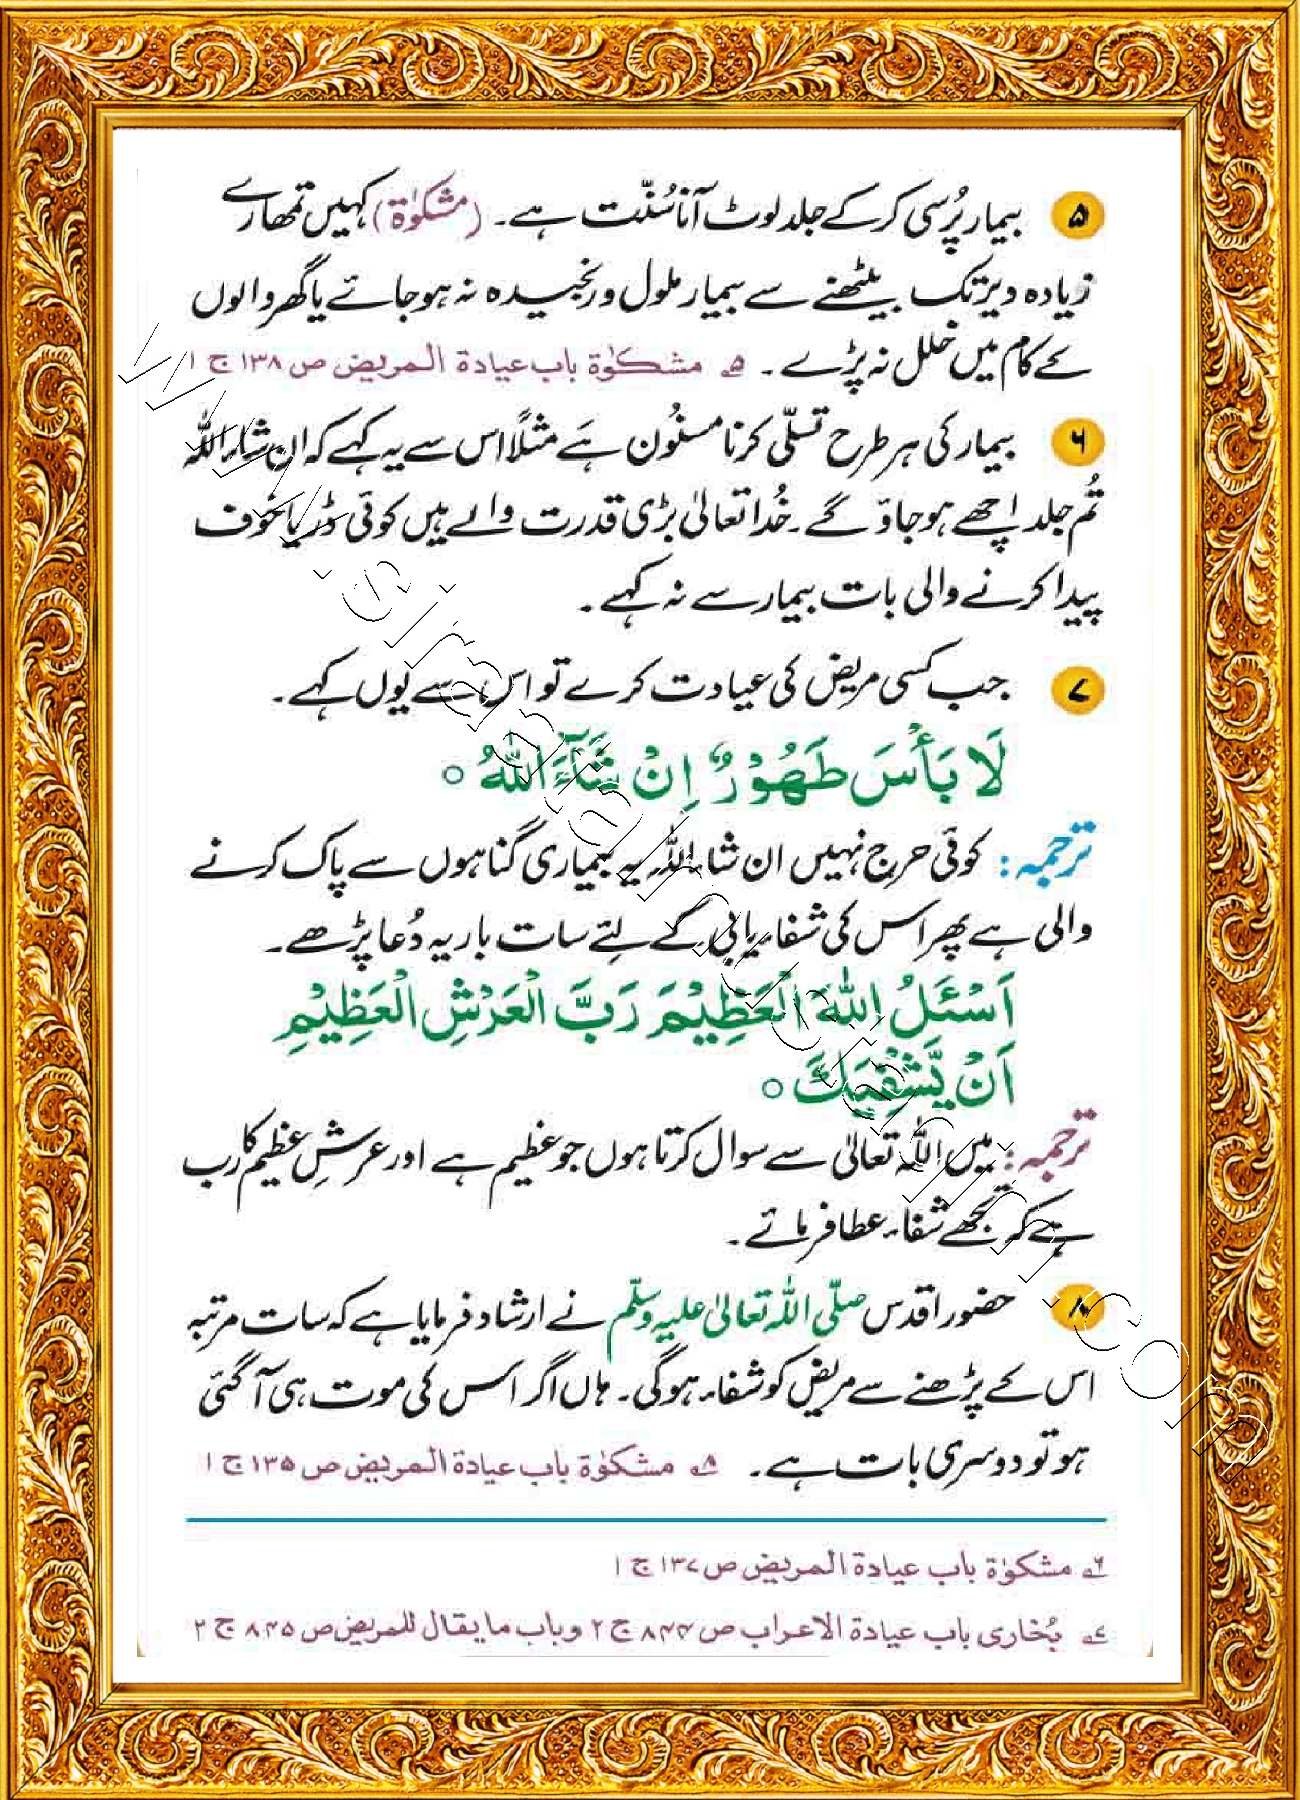 ۵ بیمار پُرسی کر کے جلد لوٹ آنا سُنّت ہے۔ (مشکوٰۃ) کہیں تمھارے
زیادہ دیر تک بیٹھنے سے بیمار ملول و رنجیدہ نہ ہو جائے یا گھر والوں
کے کام میں خلل نہ پڑے۔ ۵ مشکوٰۃ باب عیادۃ المریض ص ۱۳۸ ج ۱
۶ بیمار کی ہر طرح تسلّی کرنا مسنُون ہے مثلًا اس سے یہ کہے کہ ان شاء اللہ
تُم جلد اچھے ہو جاؤ گے۔ خُدا تعالیٰ بڑی قدرت والے ہیں کوئی ڈر یا خوف
پیدا کرنے والی بات بیمار سے نہ کہے۔
۷ جب کسی مریض کی عیادت کرے تو اس سے یوں کہے۔
لَا بَأْسَ طَهُوْرٌ اِنْ شَآءَ اللهُ ○
ترجمہ: کوئی حرج نہیں ان شاء اللہ یہ بیماری گناہوں سے پاک کرنے
والی ہے پھر اس کی شفاء یابی کے لئے سات بار یہ دُعا پڑھے۔
اَسْئَلُ اللهَ الْعَظِيْمَ رَبَّ الْعَرْشِ الْعَظِيْمِ
اَنْ يَّشْفِيَكَ ○
ترجمہ: میں اللہ تعالیٰ سے سوال کرتا ہوں جو عظیم ہے اور عرشِ عظیم کا رب
ہے کہ تجھے شفاء عطا فرمائے۔
۸ حضور اقدس صلّی اللہ تعالیٰ علیہ وسلّم نے ارشاد فرمایا ہے کہ سات مرتبہ
اس کے پڑھنے سے مریض کو شفاء ہوگی۔ ہاں اگر اس کی موت ہی آ گئی
ہو تو دوسری بات ہے۔ ۸ مشکوٰۃ باب عیادۃ المریض ص ۱۳۵ ج ۱
۶ مشکوٰۃ باب عیادۃ المریض ص ۱۳۷ ج ۱
۷ بُخاری باب عیادۃ الاعراب ص ۸۴۴ ج ۲ و باب ما یقال للمریض ص ۸۴۵ ج ۲